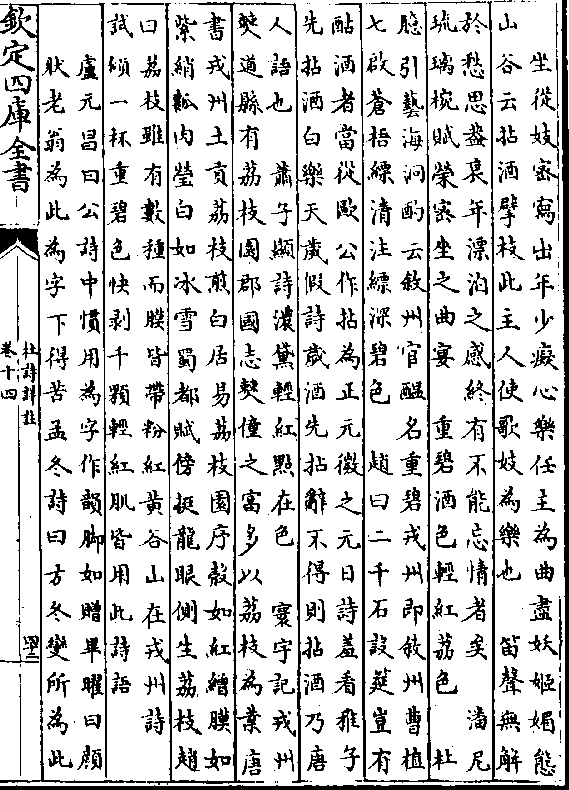 坐從妓密寫出年少癡心樂任主為曲盡妖姬媚態
山谷云拈酒擘枝此主人使歌妓為樂也　笛聲無解
於愁思盎哀年漂泊之感終有不能忘情者矣　潘尼
琉璃椀賦榮密坐之曲宴　重碧酒色輕紅荔色　杜
臆引藝海泂酌云敘州官醖名重碧戎州即敘州曹植
七啟蒼梧縹清注縹深碧色　趙曰二千石設筵豈有
酤酒者當從歐公作拈為正元微之元日詩羞看稚子
先拈酒白樂天歲假詩歲酒先拈辭不得則拈酒乃唐
人語也　蕭子顯詩濃黛輕紅點在色　寰宇記戎州
僰道縣有荔枝園郡國志僰僮之富多以荔枝為業唐
書戎州土貢荔枝煎白居易荔枝園序殼如紅繒膜如
紫綃瓤肉瑩白如冰雪蜀都賦傍挺龍眼側生荔枝趙
曰荔枝雖有數種而膜皆帶粉紅黃谷山在戎州詩
試傾一杯重碧色快剥千顆輕紅肌皆用此詩語
盧元昌曰公詩中慣用為字作韻脚如贈畢曜曰顏
狀老翁為此為字下得苦孟冬詩曰方冬變所為此
欽定四庫全書
杜詩詳註
卷十四
四二